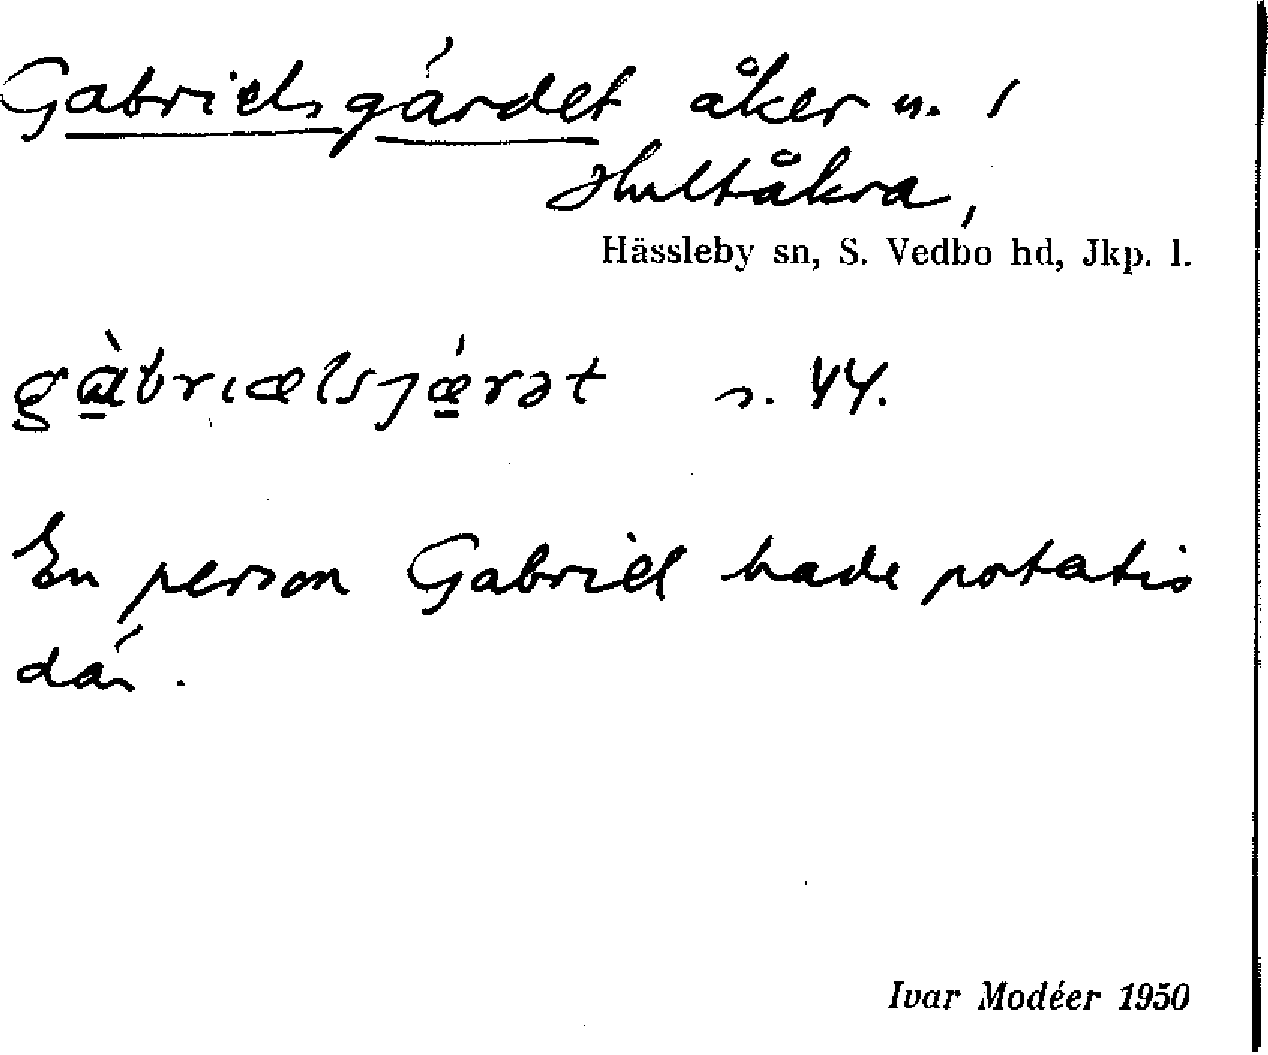 Gabrielsgärdet åker n. 1
Hultåkra,
Hässleby sn, S. Vedbo hd, Jkp. l.
gὰbrıælsjǽrət s. 44.
En person Gabriel hade potatis
där.
Ivar Modéer 1950